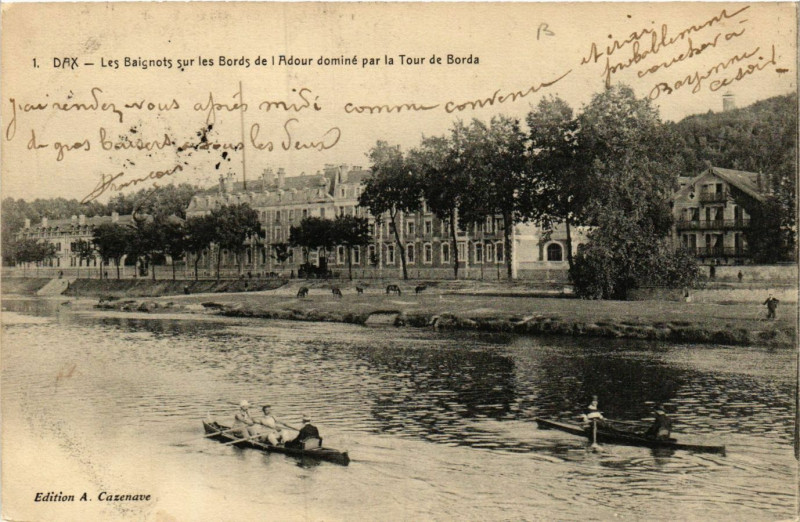 1. DAX — Les Baignots sur les Bords de l'Adour dominé par la Tour de Borda
B
J'ai rendez-vous après midi comme convenu et irai
probablement
coucher à
Bayonne
ce soir.
de gros baisers à vous les deux
François
Edition A. Cazenave